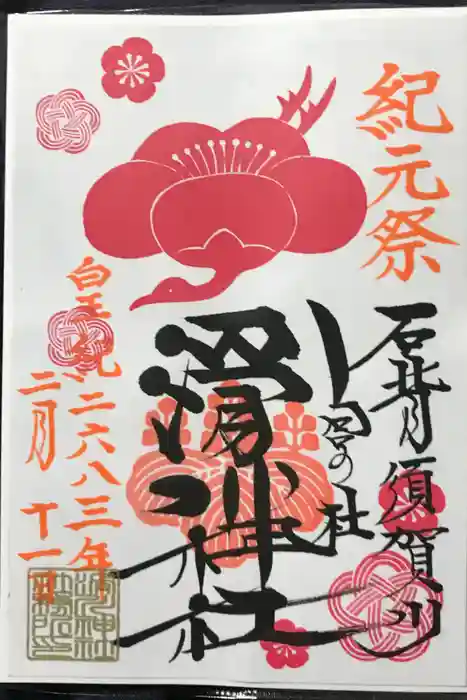 紀元祭
石背須賀川
滑川神社
皇紀二六八三年
二月十一日